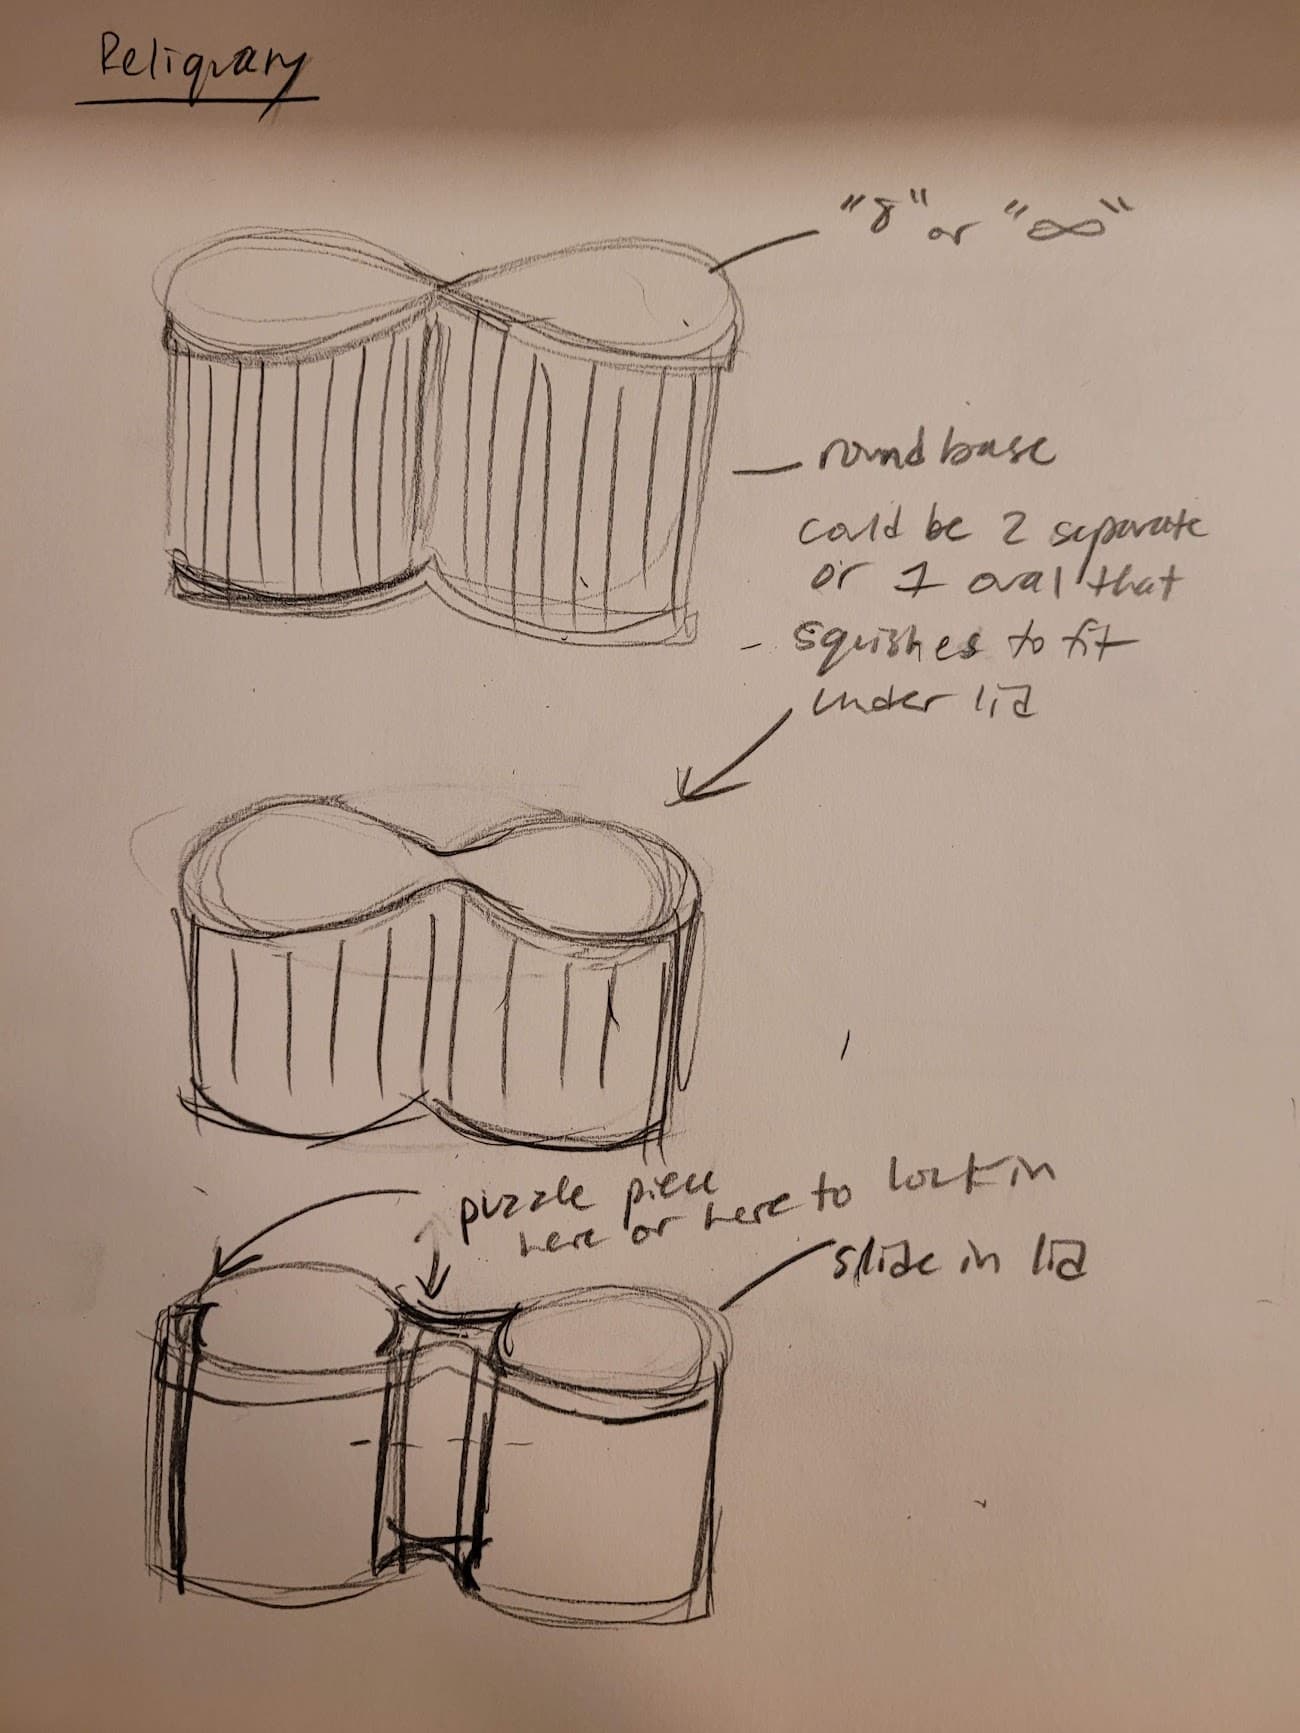 Reliquary
"8" or "∞"
round base
could be 2 separate
or 1 oval that
- squishes to fit
under lid
puzzle piece
here or here to lock in
slide in lid